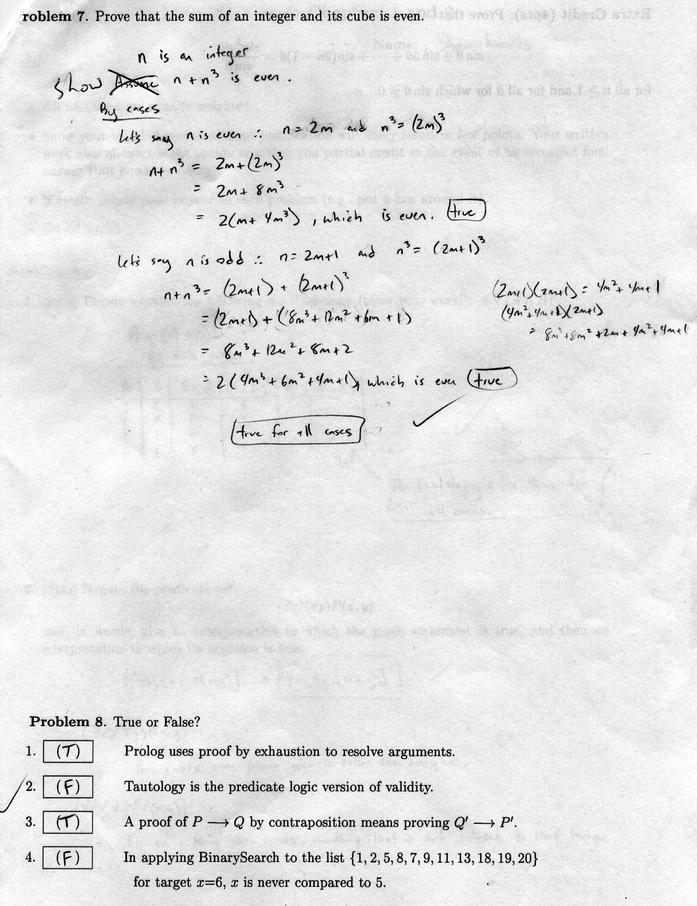 roblem 7. Prove that the sum of an integer and its cube is even.
n is an integer
Show Assume n + n³ is even.
By cases
Let's say n is even ∴ n = 2m and n³ = (2m)³
n + n³ = 2m + (2m)³
= 2m + 8m³
= 2(m + 4m³), which is even. true
Let's say n is odd ∴ n = 2m+1 and n³ = (2m+1)³
n + n³ = (2m+1) + (2m+1)³
(2m+1)(2m+1) = 4m² + 4m + 1
= (2m+1) + (8m³ + 12m² + 6m + 1)
(4m² + 4m + 1)(2m+1)
= 8m³ + 8m² + 2m + 4m² + 4m + 1
= 8m³ + 12m² + 8m + 2
= 2(4m³ + 6m² + 4m + 1), which is even true
true for all cases
Problem 8. True or False?
1. (T) Prolog uses proof by exhaustion to resolve arguments.
2. (F) Tautology is the predicate logic version of validity.
3. (T) A proof of P ⟶ Q by contraposition means proving Q′ ⟶ P′.
4. (F) In applying BinarySearch to the list {1, 2, 5, 8, 7, 9, 11, 13, 18, 19, 20}
for target x=6, x is never compared to 5.